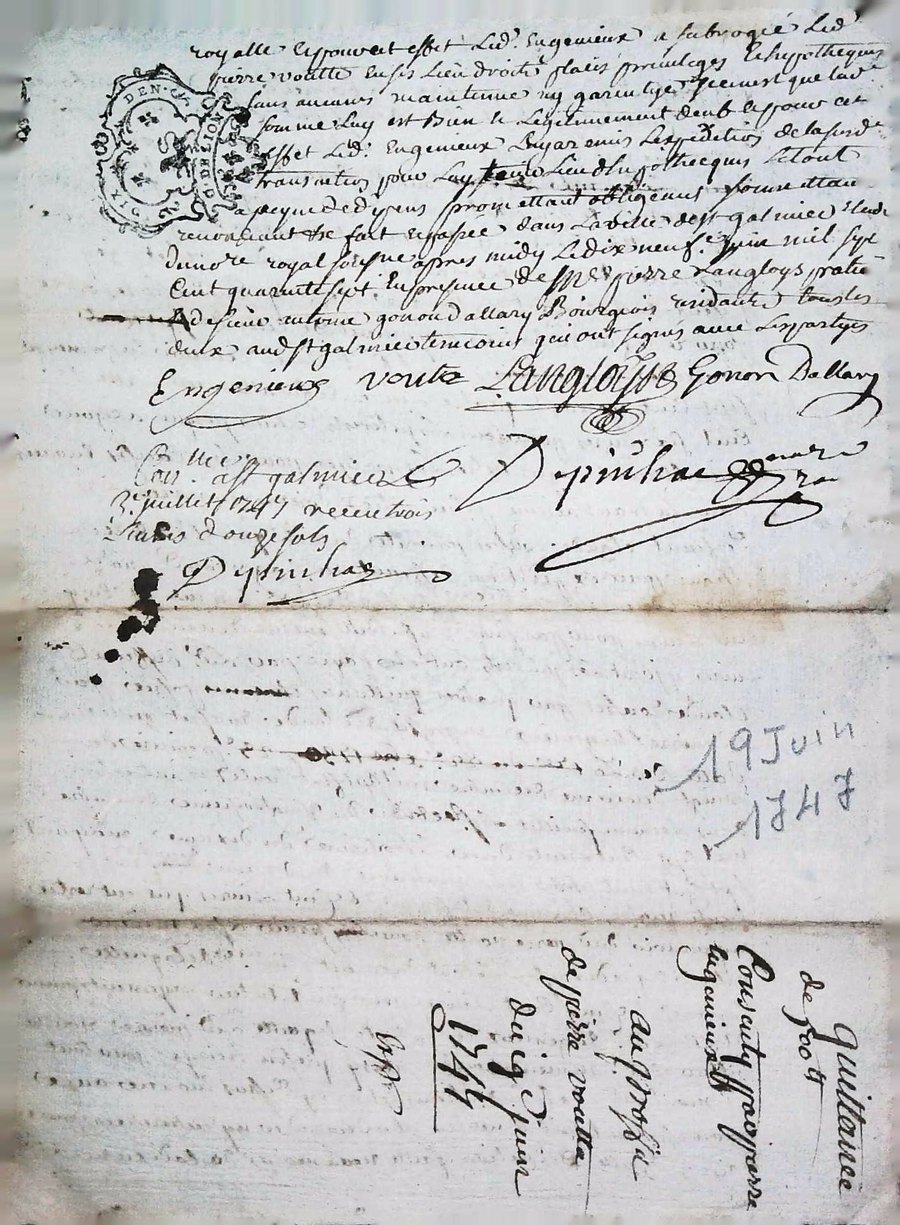 royalle et pour cet effet led.t Engenieux a subrogé led.t
pierre voulte en ses lieu droits places privileges et hypotheques
sans aucune maintenue ny garentye si ce n'est que lad.e
somme luy est bien et legitimement deub et pour cet
effet led.t Engenieux luy a remis l'expedition de lasusd.e
transaction pour luy tenir lieu d'hypothecque le tout
a peyne de depens promettant obligeans soumettan
renonceant &c fait et passé dans la ville de st galmier
notre royal soussigné apres midy le dix neuf.e juin mil sept
cent quarante sept En presence de M.e pierre Langloys praticie
& de sieur antoine gonon dallary Bourgeois residants tous les
deux aud st galmier temoins qui ont signes avec les partyes
Engenieux voulte Langloys Gonon Dallary
Depinhac
Con.llé a st galmier Le
3.e juillet 1747 receu trois
livres douze sols
Depinhac
DEN.
G. DE LION
19 Juin
1747
quittance
de 500 lt
Consenty par pierre
Engenieux
au proffit
de pierre voulte
du 19 juin
1747
Exp.